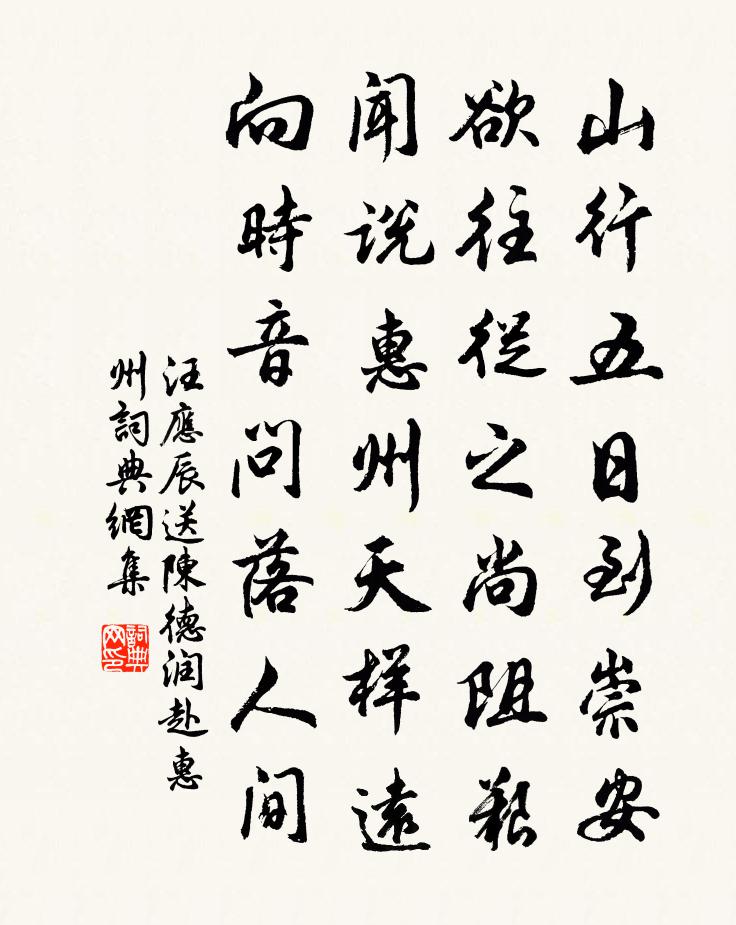 山行五日到崇安
欲往從之尚阻艱
聞説惠州天樣遠
向時音問落人間
汪應辰送陳德润赴惠
州詞典網集
詞典网印